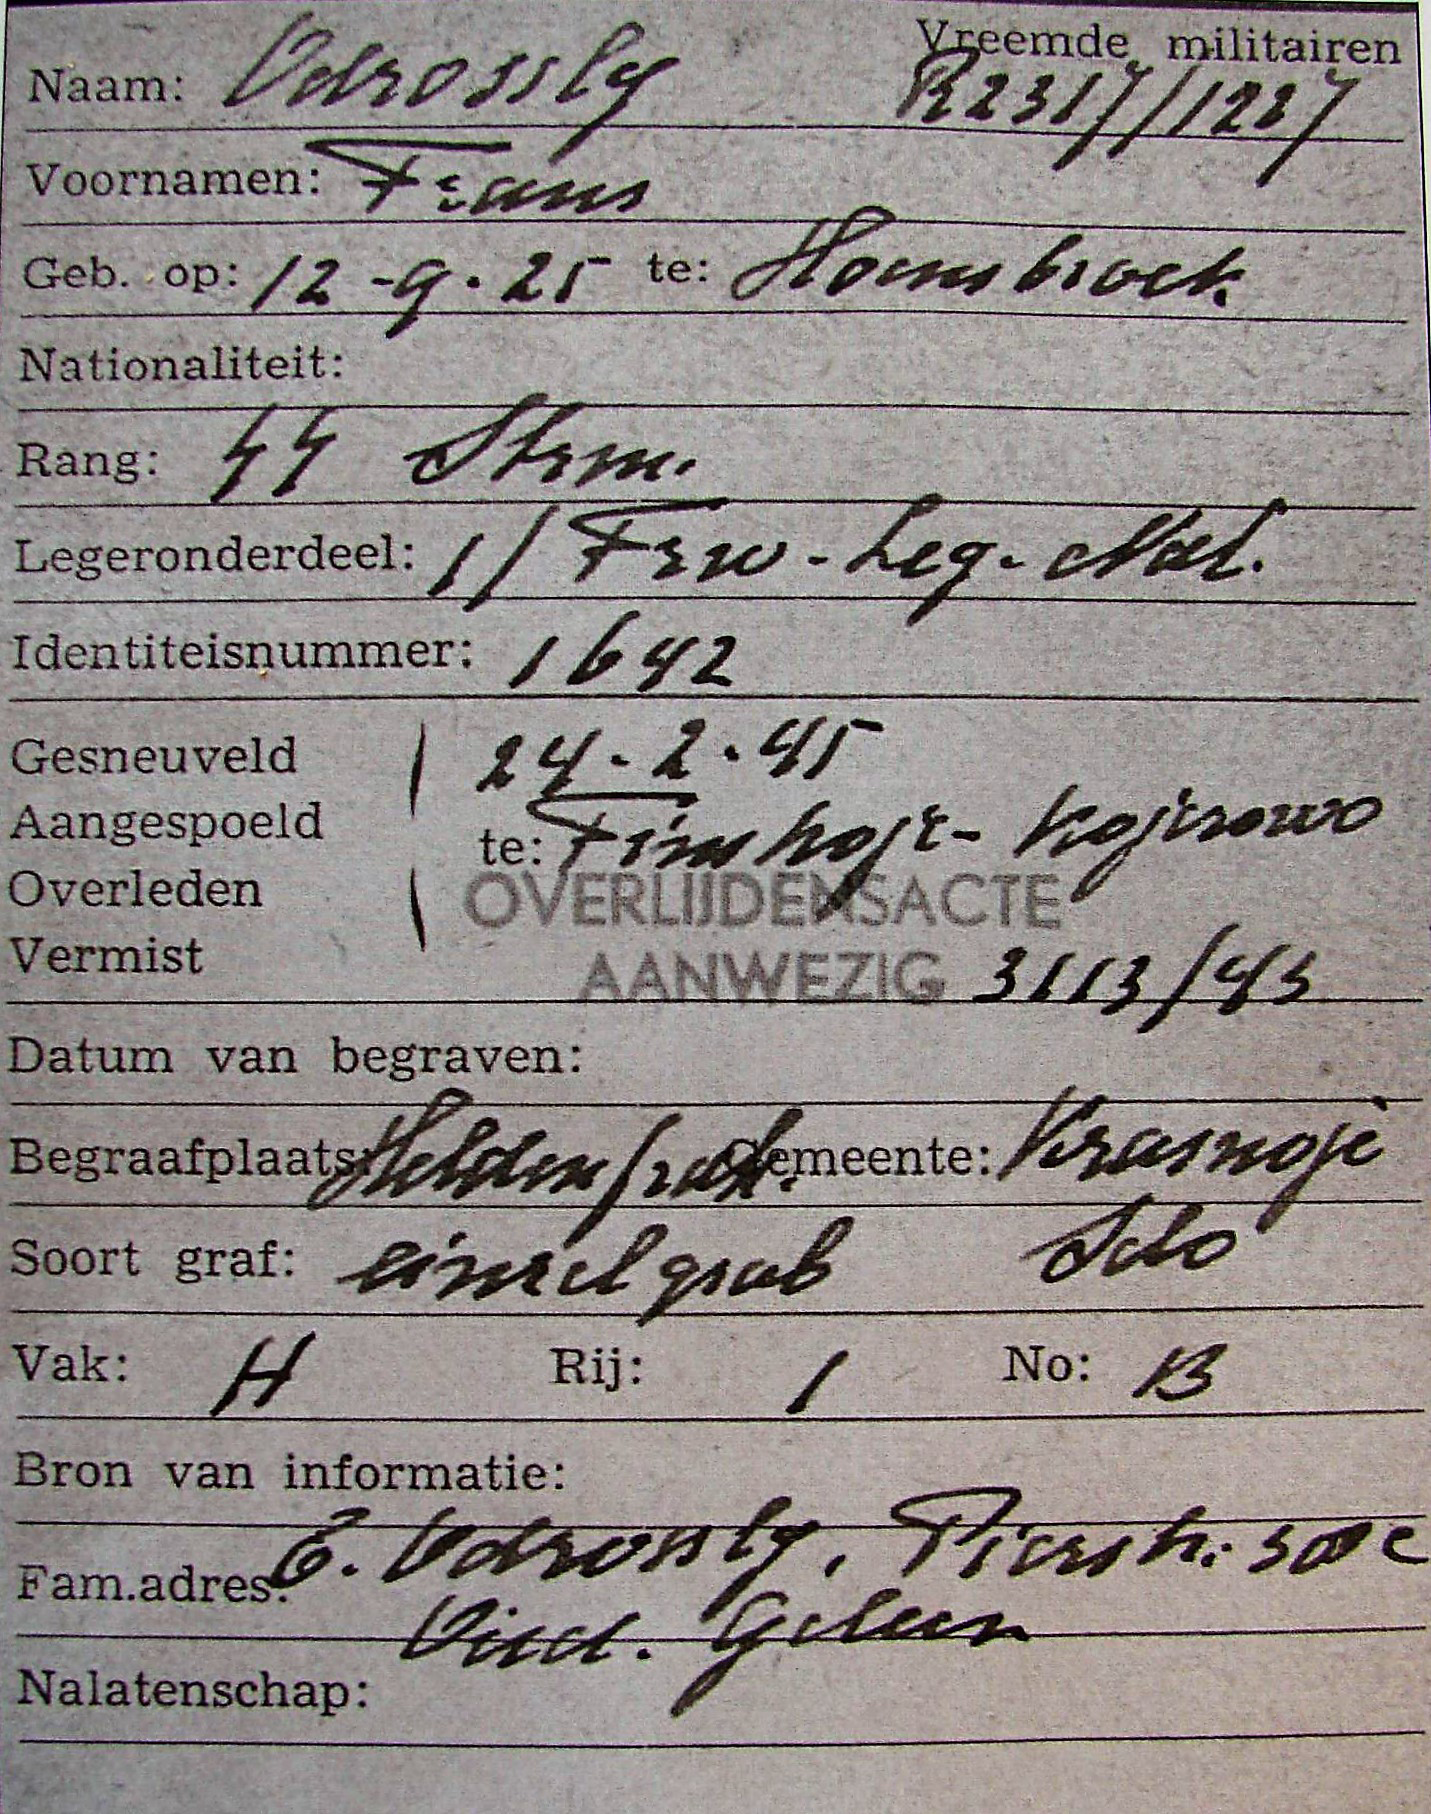 Vreemde militairen
Naam: Odrossly R2317/1227
Voornamen: Frans
Geb. op: 12-9-25 te: Hoensbroek
Nationaliteit:
Rang: SS Strm.
Legeronderdeel: 1/ Frw-Leg-Ndl.
Identiteisnummer: 1642
Gesneuveld 24-2-45
Aangespoeld te: Finskoje-
Overleden
OVERLIJDENSACTE
Vermist AANWEZIG 3113/43
Datum van begraven:
Begraafplaats: Heldenfrdh. Gemeente: Krasnoje
Soort graf: einzelgrab Selo
Vak: H Rij: 1 No:
Bron van informatie:
Fam.adres: E. Odrossly,
Geleen
Nalatenschap: